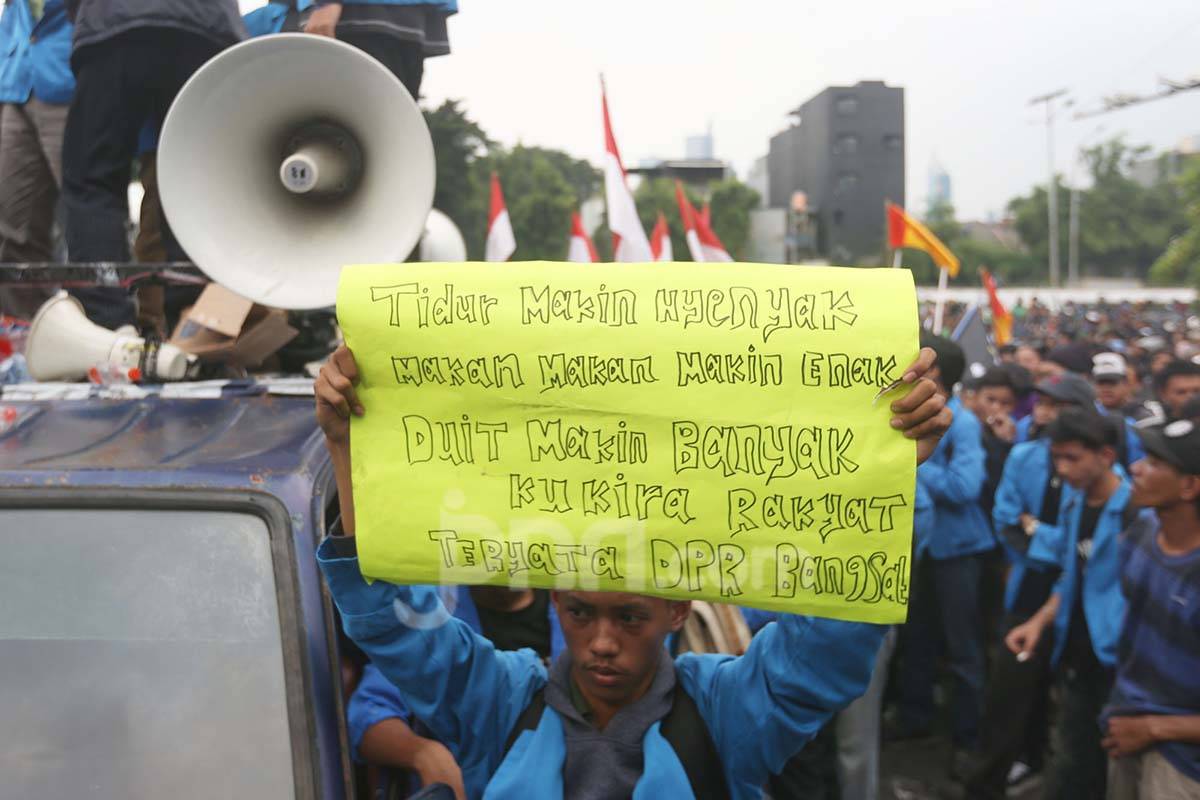 Tidur Makin Nyenyak
Makan Makan Makin Enak
Duit Makin Banyak
Ku kira Rakyat
Teryata DPR Bangsat